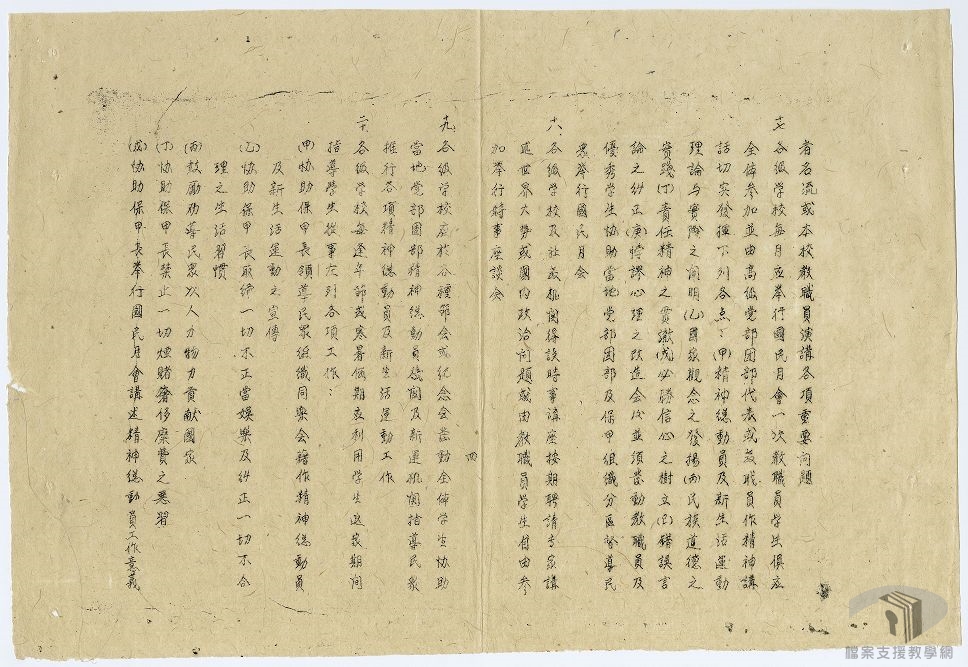 者名流或本校教職員演講各項重要問題
十七、各級學校每月应举行國民月會一次教職員学生俱应
全体参加並由高級党部团部代表或教職員作精神講
話切实發揮下列各点：(甲)精神總動員及新生活運動
理論与實際之闡明(乙)國家觀念之發揚(丙)民族道德之
實踐(丁)責任精神之貫澈(戊)必勝信心之樹立(己)錯誤言
論之糾正(庚)悖謬心理之改造会後並須發動教職員及
優秀学生協助當地党部团部及保甲組織分區督導民
眾举行國民月会
十八、各級学校及社教机関得設時事講座按期聘請专家講
述世界大势或國内政治问題或由教職員学生自由参
加举行時事座談会
四
十九、各級学校应於各種節会或纪念会發動全体学生協助
當地党部团部精神總動員機関及新運机関指導民眾
推行各項精神總動員及新生活運動工作
二十、各級学校每逢年節或寒暑假期应利用学生返家期间
指導学生從事左列各項工作：
(甲)協助保甲長領導民眾組織同樂会籍作精神總動員
及新生活運動之宣傳
(乙)協助保甲長取締一切不正當娛樂及糾正一切不合
理之生活習慣
(丙)鼓勵劝導民眾以人力物力貢献國家
(丁)協助保甲長禁止一切煙賭奢侈糜費之惡習
(戊)協助保甲長举行國民月會講述精神總動員工作意義
檔案支援教學網